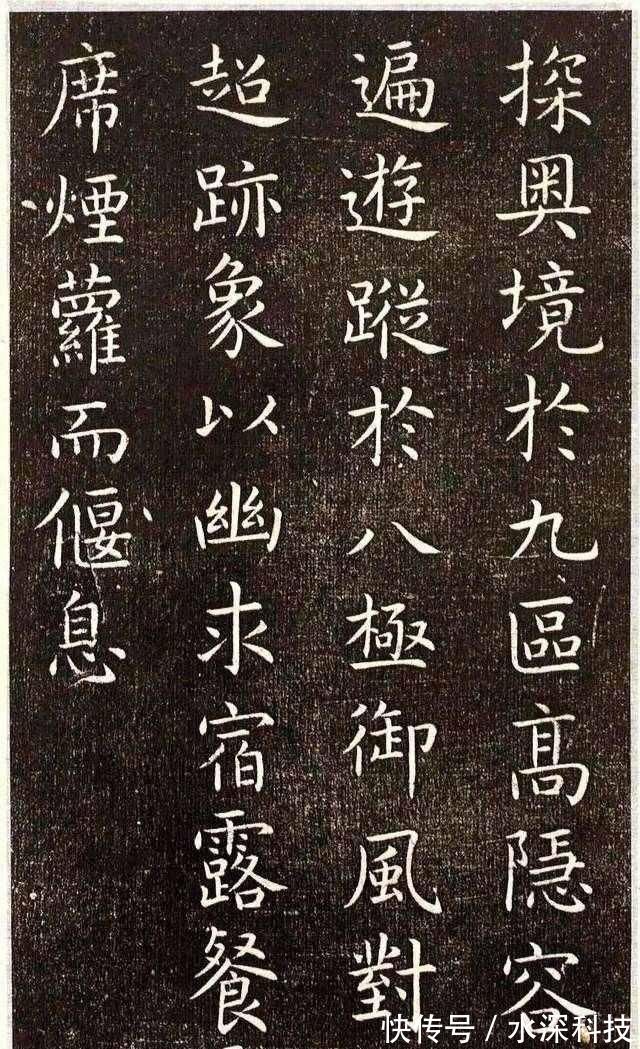 探奥境於九區高隱容
遍遊蹤於八極御風對
超跡象以幽求宿露餐
席煙蘿而偃息
快传号/水深科技